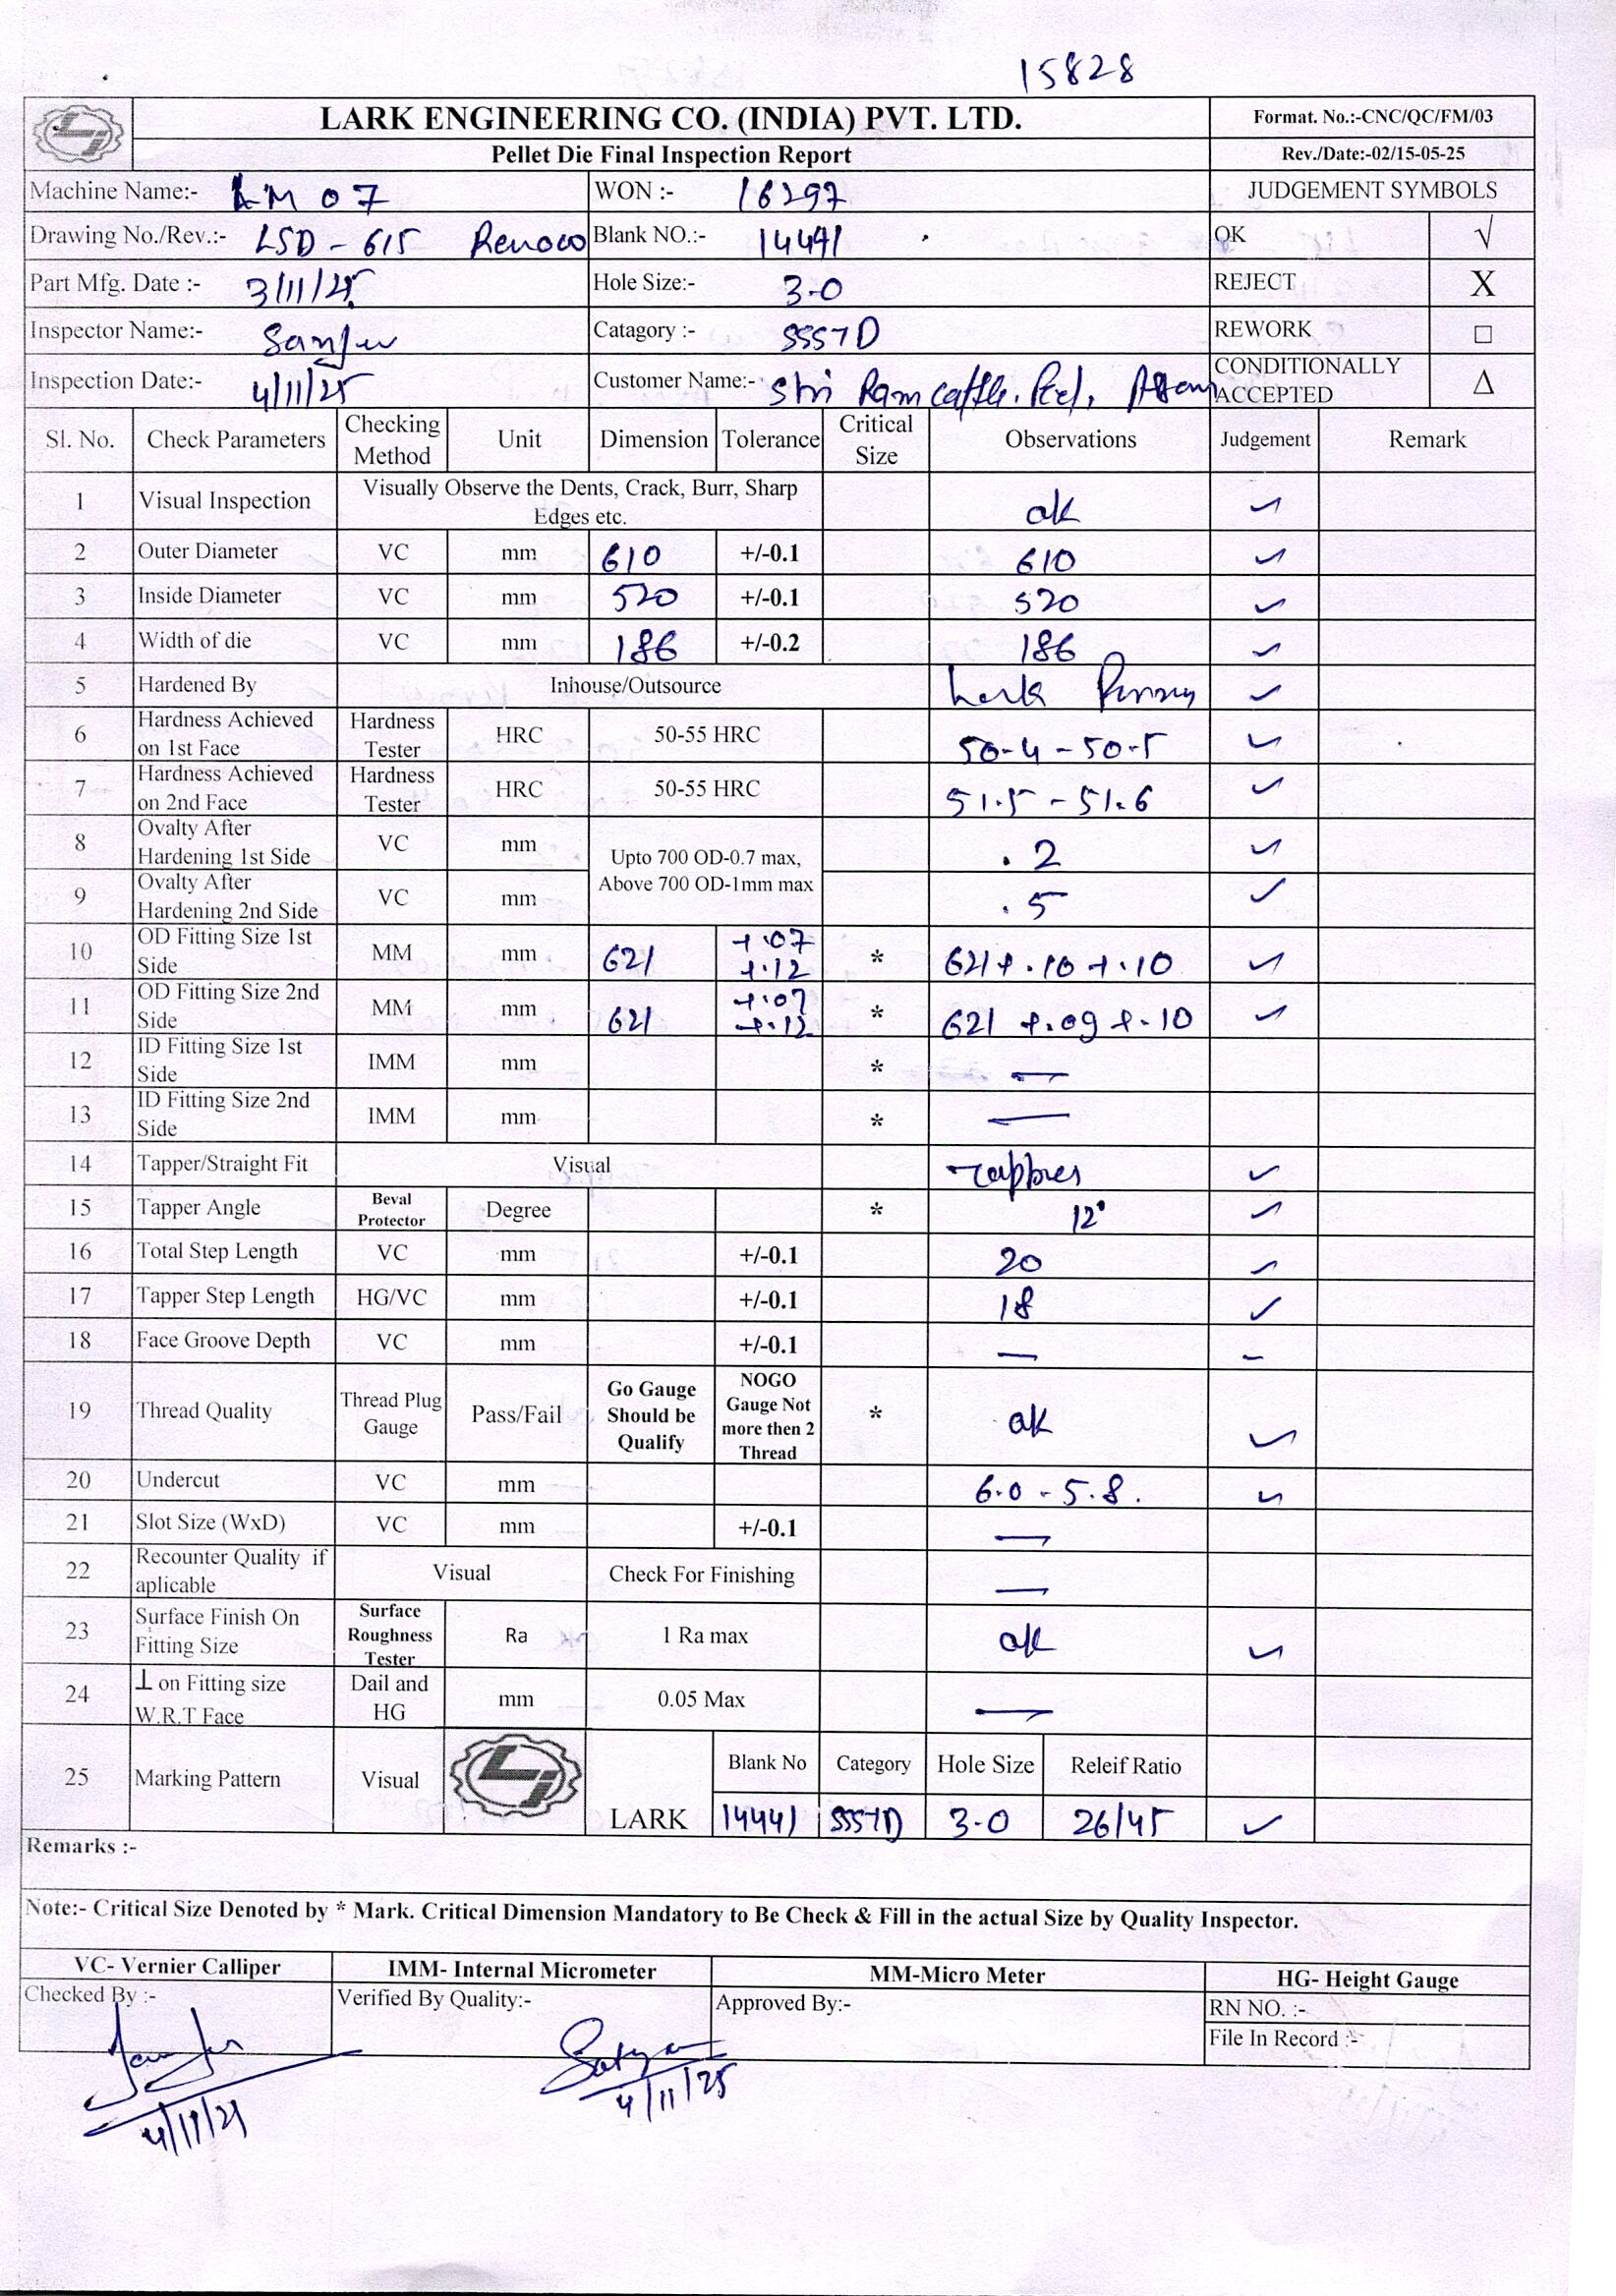 15828
LARK ENGINEERING CO. (INDIA) PVT. LTD. Format. No.:-CNC/QC/FM/03
Pellet Die Final Inspection Report Rev./Date:-02/15-05-25
Machine Name:- LM 07 WON :- 16297 JUDGEMENT SYMBOLS
Drawing No./Rev.:- LSD - 615 Blank NO.:- 14441 OK √
Part Mfg. Date :- 3/11/25 Hole Size:- 3.0 REJECT X
Inspector Name:- Sanju Catagory :- SSS7D REWORK □
Inspection Date:- 4/11/25 Customer Name:- Shri Ram cattle. Feed, Assam CONDITIONALLY ACCEPTED Δ
Sl. No. Check Parameters Checking Method Unit Dimension Tolerance Critical Size Observations Judgement Remark
1 Visual Inspection Visually Observe the Dents, Crack, Burr, Sharp Edges etc. ok ✓
2 Outer Diameter VC mm 610 +/-0.1 610 ✓
3 Inside Diameter VC mm 520 +/-0.1 520 ✓
4 Width of die VC mm 186 +/-0.2 186 ✓
5 Hardened By Inhouse/Outsource Lark ✓
6 Hardness Achieved on 1st Face Hardness Tester HRC 50-55 HRC 50.4 - 50.5 ✓
7 Hardness Achieved on 2nd Face Hardness Tester HRC 50-55 HRC 51.5 - 51.6 ✓
8 Ovalty After Hardening 1st Side VC mm Upto 700 OD-0.7 max, Above 700 OD-1mm max .2 ✓
9 Ovalty After Hardening 2nd Side VC mm .5 ✓
10 OD Fitting Size 1st Side MM mm 621 +.07 +.12 * 621 +.10 +.10 ✓
11 OD Fitting Size 2nd Side MM mm 621 +.07 +.12 * 621 +.09 +.10 ✓
12 ID Fitting Size 1st Side IMM mm * —
13 ID Fitting Size 2nd Side IMM mm * —
14 Tapper/Straight Fit Visual Tapper ✓
15 Tapper Angle Beval Protector Degree * 12° ✓
16 Total Step Length VC mm +/-0.1 20 ✓
17 Tapper Step Length HG/VC mm +/-0.1 18 ✓
18 Face Groove Depth VC mm +/-0.1 — -
19 Thread Quality Thread Plug Gauge Pass/Fail Go Gauge Should be Qualify NOGO Gauge Not more then 2 Thread * ok ✓
20 Undercut VC mm 6.0 - 5.8. ✓
21 Slot Size (WxD) VC mm +/-0.1 —
22 Recounter Quality if aplicable Visual Check For Finishing —
23 Surface Finish On Fitting Size Surface Roughness Tester Ra 1 Ra max ok ✓
24 ⊥ on Fitting size W.R.T Face Dail and HG mm 0.05 Max —
25 Marking Pattern Visual LARK Blank No Category Hole Size Releif Ratio
14441 SSS7D 3.0 26/45 ✓
Remarks :-
Note:- Critical Size Denoted by * Mark. Critical Dimension Mandatory to Be Check & Fill in the actual Size by Quality Inspector.
VC- Vernier Calliper IMM- Internal Micrometer MM-Micro Meter HG- Height Gauge
Checked By :- Verified By Quality:- Approved By:- RN NO. :-
File In Record :-
Sanju Satya
4/11/25 4/11/25